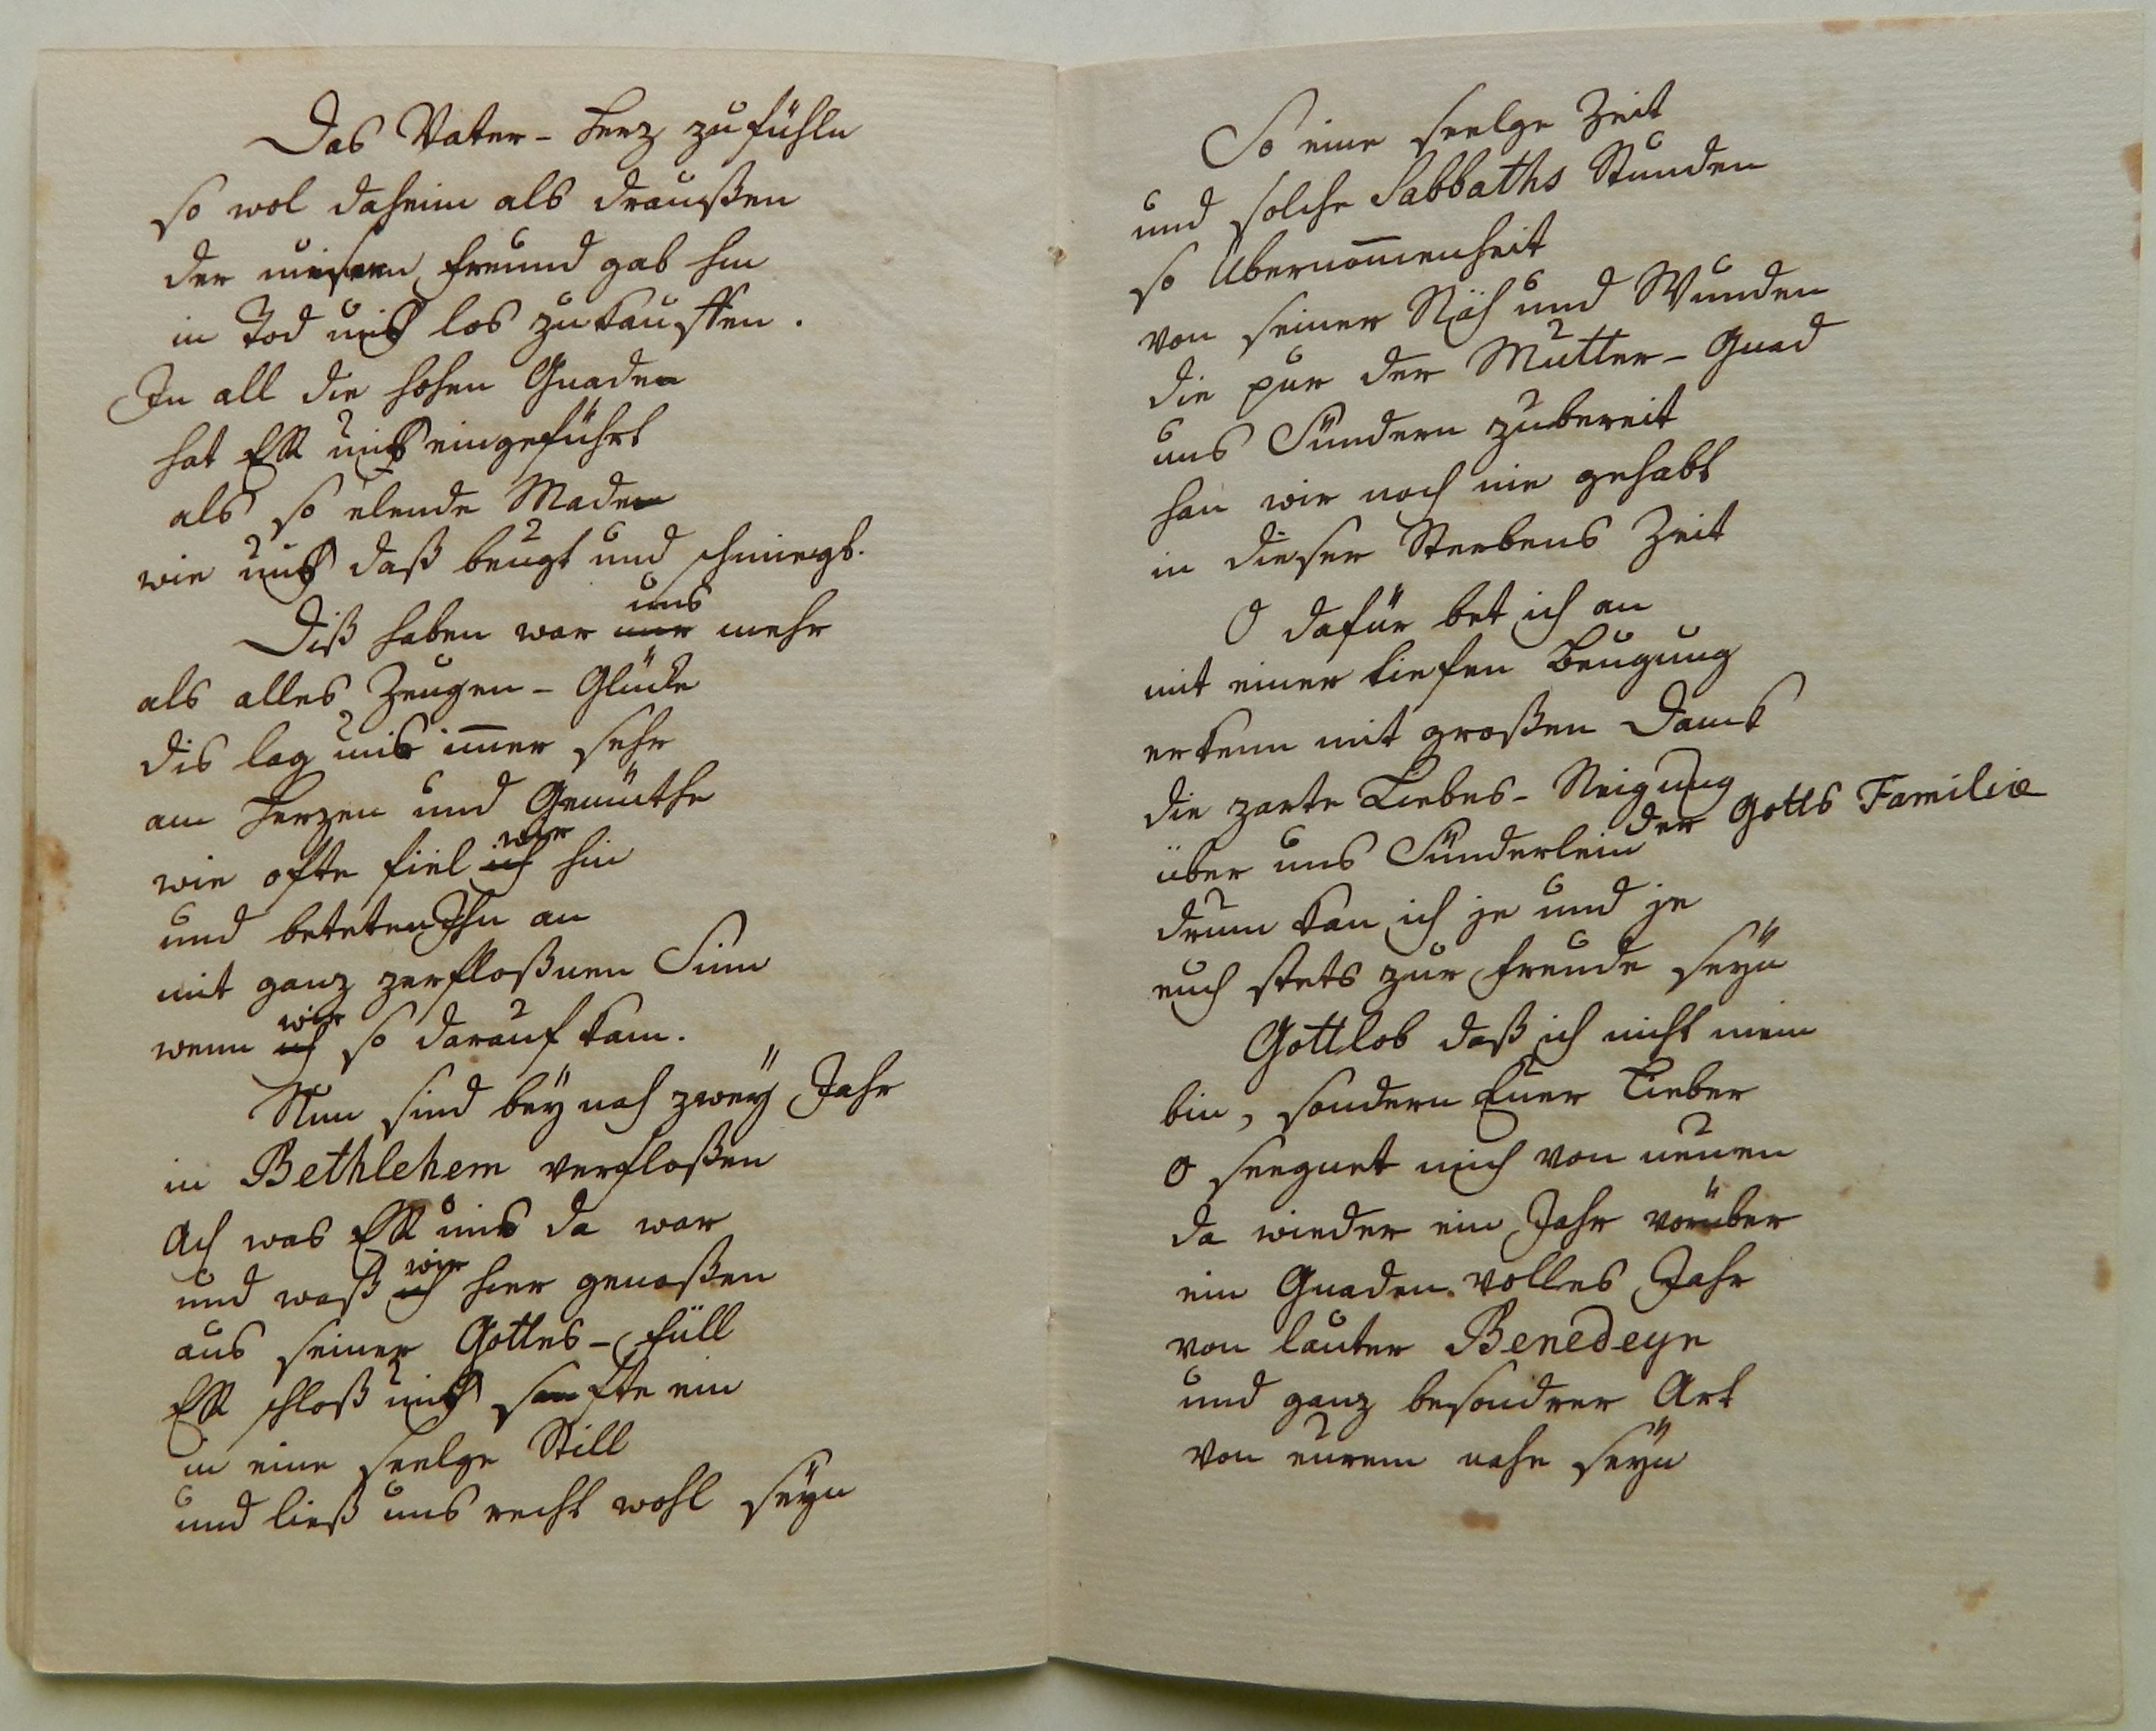 Das Vater-Herz zu fühln
so wol daheim als draussen
der unsern Freund gab hin
in Tod uns los zu kauffen.
In all die hohen Gnaden
hat Er uns eingeführt
als so elende Maden
wie uns daß beugt und schmiegt.
uns
Diß haben war mir mehr
als alles Zeugen-Glücke
dis lag uns im̄er sehr
am Herzen und Gemüthe
wir
wie ofte fiel ich hin
und beteten Ihn an
mit ganz zerfloßnen Sinn
wir
wenn ich so darauf kam.
Nun sind beÿ nah zweÿ Jahr
in Bethlehem verfloßen
Ach was Er uns da war
wir
und waß ich hier genoßen
aus seiner Gottes-Füll
Er schloß uns sanfte ein
in eine seelge Still
und ließ uns recht wohl seÿn
So eine seelge Zeit
und solche Sabbaths Stunden
so Übernom̄enheit
von seiner Näh und Wunden
die pur der Mutter-Gnad
uns Sündern zubereit
han wir noch nie gehabt
in dieser Sterbens Zeit
O dafür bet ich an
mit einer tiefen Beugung
erkenn mit großen Dank
die zarte Liebes-Neigung
über uns Sünderlein der Gotts Familie
drum kan ich je und je
euch stets zur Freude seÿn
Gottlob daß ich nicht mein
bin, sondern Euer Lieber
O seegnet mich von neuen
da wieder ein Jahr vorüber
ein Gnaden volles Jahr
von lauter Benedeyn
und ganz besondrer Art
von eurem nahe seÿn